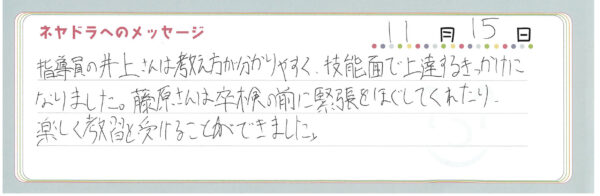 ネヤドラへのメッセージ 11月15日
指導員の井上さんは教え方が分かりやすく、技能面で上達するきっかけに
なりました。藤原さんは卒検の前に緊張をほぐしてくれたり、
楽しく教習を受けることができました。